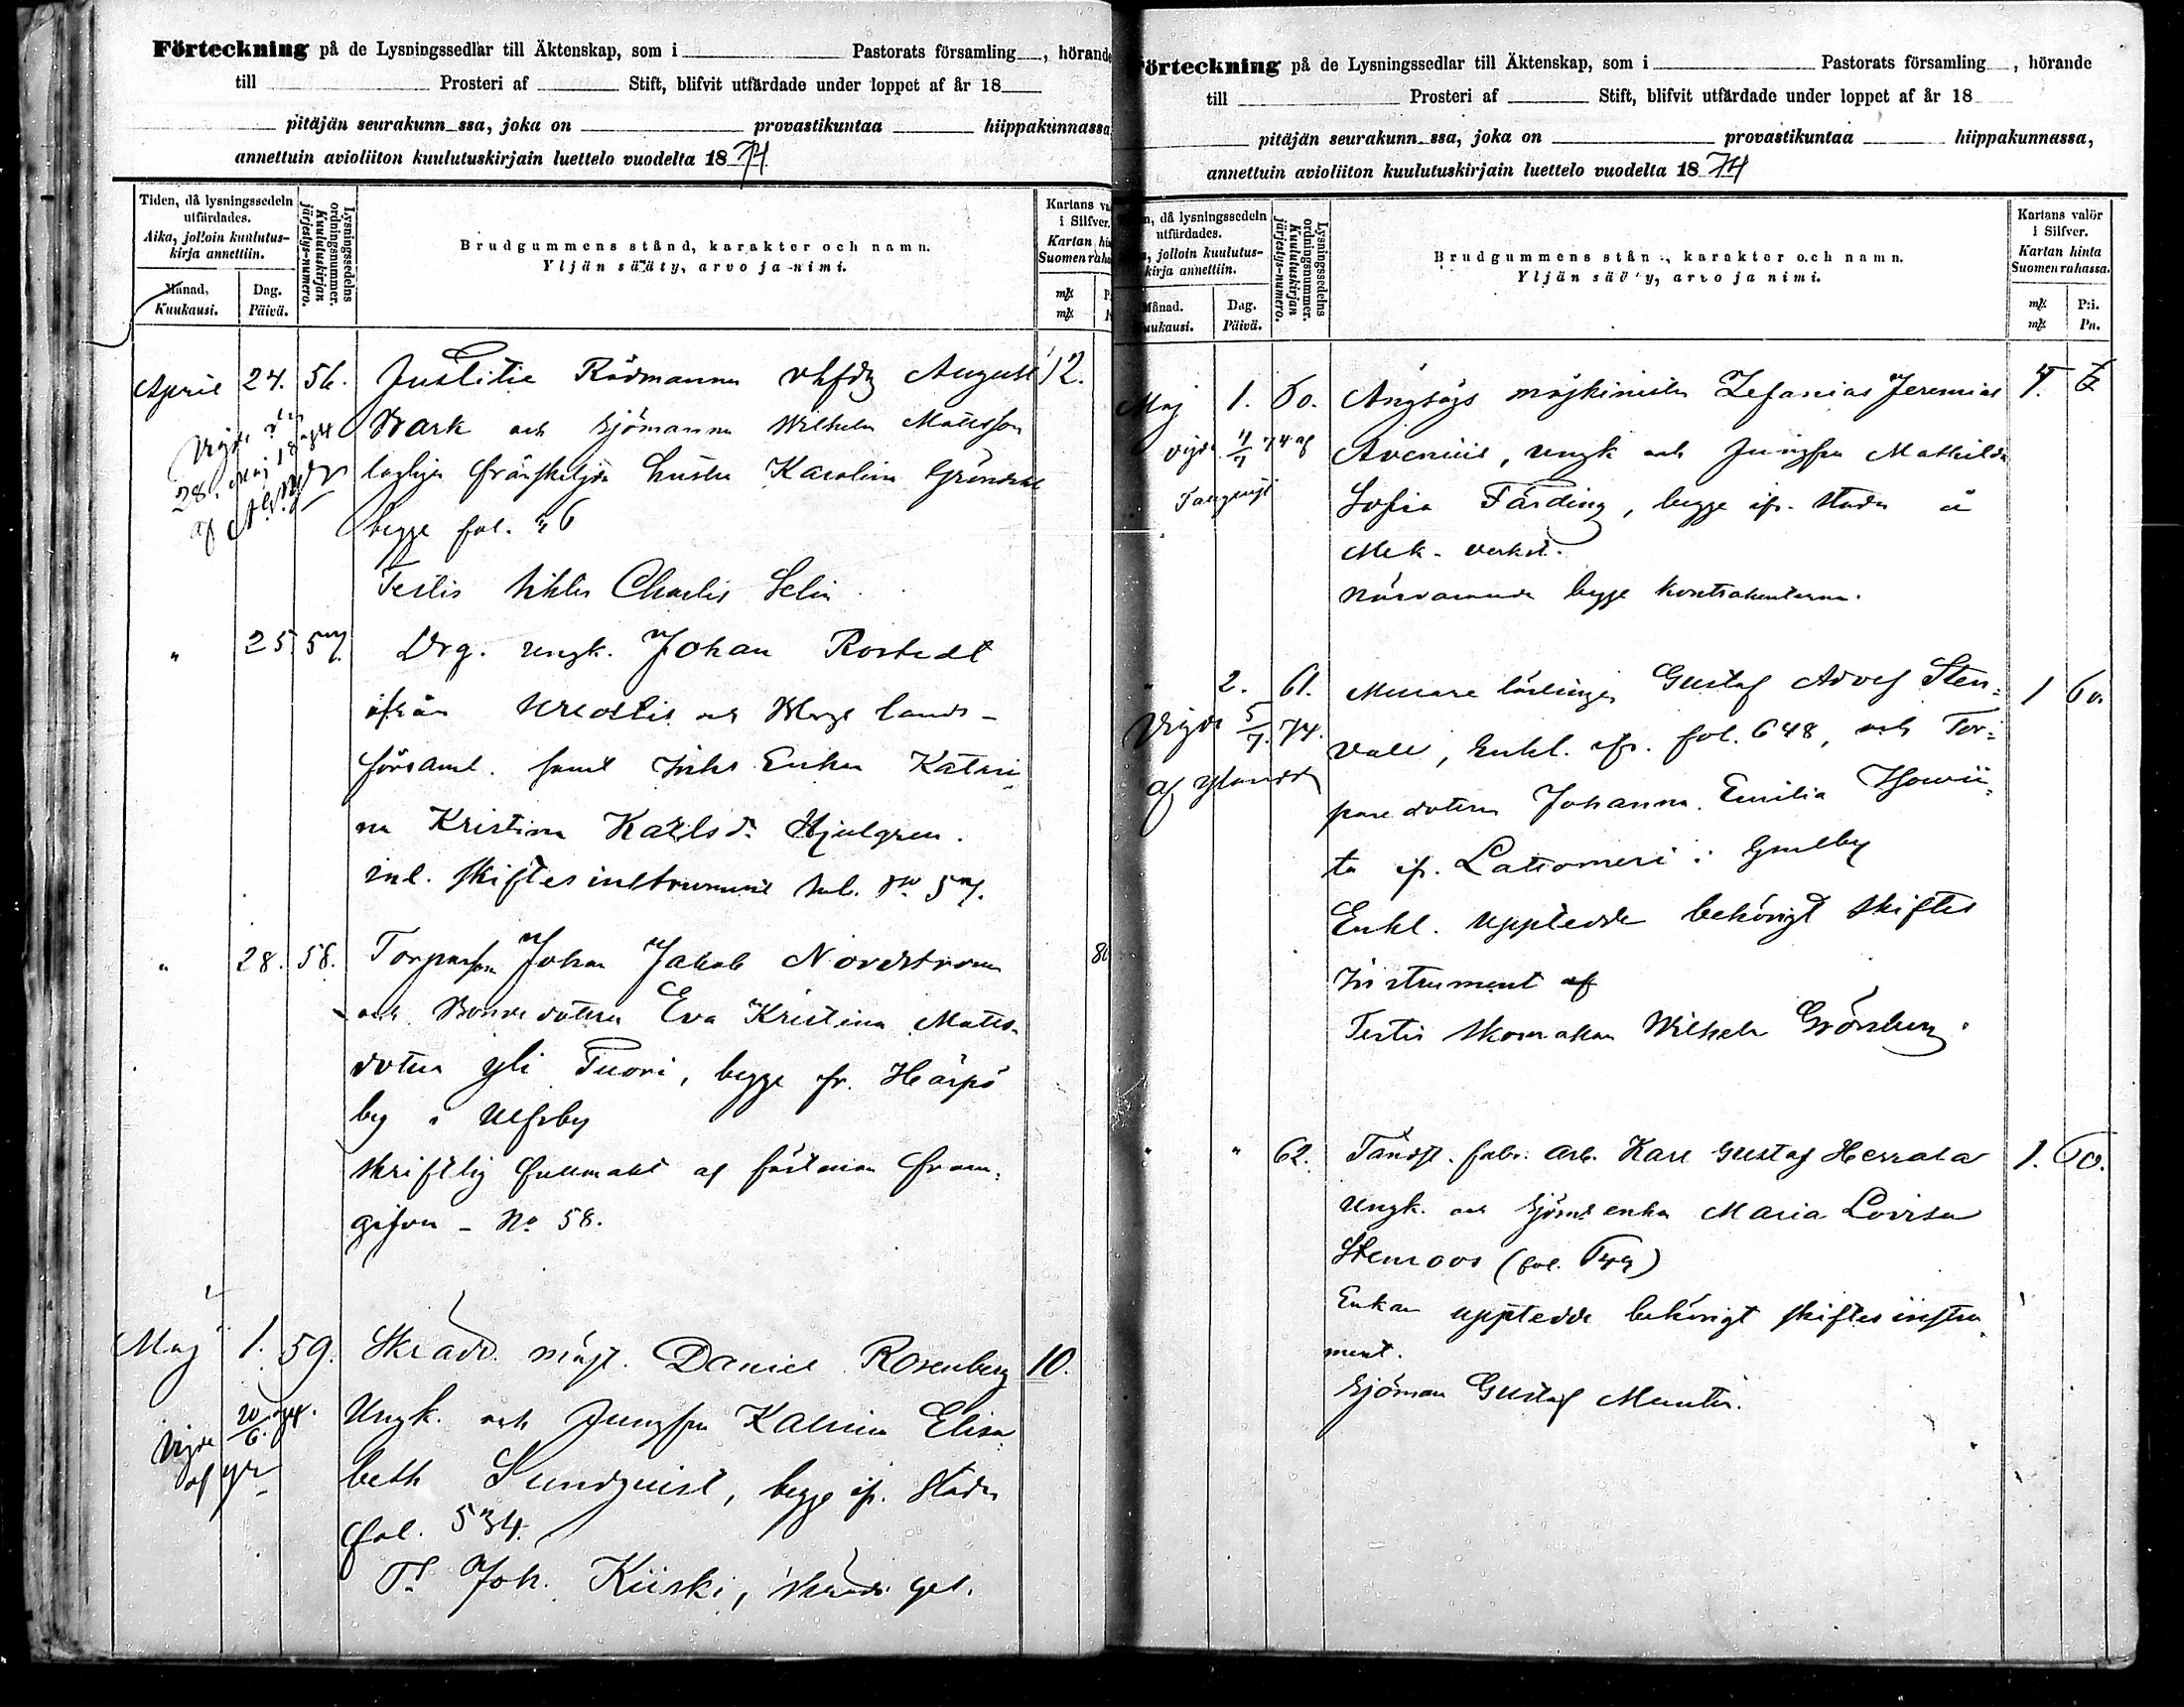 Förteckning på de Lysningssedlar till Äktenskap, som i Pastorats församling, hörande
till Prosteri af Stift, blifvit utfärdade under loppet af år 18
pitäjän seurakunn ssa, joka on provastikuntaa hiippakunnassa
annettuin avioliiton kuulutuskirjain luettelo vuodelta 1874
Tiden, då lysningssedeln utfärdades.
Aika, jolloin kuulutus-kirja annettiin.
Månad,
Kuukausi.
Dag.
Päivä.
Lysningssedelns ordningsnummer.
Kuulutuskirjan järjestys-numero.
Brudgummens stånd, karakter och namn.
Yljän sääty, arvo ja nimi.
Kartans
i Silfver.
Kartan
Suomen
April 24. 56. Justitie Rådmannen August 12.
Wark och Sjömannen Wilhelm Mattsson
lagligen frånskiljda hustru Karolina
begge fol. 6
Vigde den
28. Maj 1874
af
Testis Charles Selin
" 25. 57. Drg. ungk. Johan Rostedt
ifrån och lands-
församl. samt Enkan Katari
na Kristina Karlsd. Hjulgren.
inl. skiftesinstrument sub. No 57.
" 28. 58. Torpareson Johan Jakob Nordström 80
och Bondedottern Eva Kristina Matts
dotter Yli Tuori, begge fr. Härpö
by i Ulfsby
skriftlig fullmakt af fästman fram-
gifven - No 58.
Maj 1. 59. Skrädd. mäst. Daniel Rosenberg 10.
Ungk. och Jungfru Karolina Elisa
beth Sundqvist, begge ifr. staden
fol. 534.
Vigde 20/6. 74.
af
Ts Joh. Kiiski, skrädd. ges.
Förteckning på de Lysningssedlar till Äktenskap, som i Pastorats församling, hörande
till Prosteri af Stift, blifvit utfärdade under loppet af år 18
pitäjän seurakunn ssa, joka on provastikuntaa hiippakunnassa,
annettuin avioliiton kuulutuskirjain luettelo vuodelta 1874
då lysningssedeln utfärdades.
jolloin kuulutus-kirja annettiin.
Månad.
Dag.
Päivä.
Lysningssedelns ordningsnummer.
Kuulutuskirjan järjestys-numero.
Brudgummens stånd, karakter och namn.
Yljän sääty, arvo ja nimi.
Kartans valör
i Silfver.
Kartan hinta
Suomen rahassa.
mk P:i.
mk Pn.
Maj 1. 60. Ångsågs maskinisten Zefanias Jeremias
Avenius, ungk och Jungfru Mathilda
Sofia Färding, begge ifr. staden å
Mek. verkst.
närvarande begge kontrahenterna.
vigde 74 af
" 2. 61. Murare lärlingen Gustaf Adolf Sten- 1 60.
vall, Enkl. ifr. fol. 648, och Tor-
paredottern Johanna Emilia
ta ifr. Lattomeri i Gulby
Enkl. upptedde behörigt skiftes
Instrument af
Testis skomakaren Wilhelm Grönberg.
Vigde 5/7. 74.
af
" " 62. Tändst. fabr. arb. Karl Gustaf Herrala 1. 60.
Ungk. och Sjöms enka Maria Lovisa
Stenroos (fol.
Enkan upptedde behörigt skiftesinstru
ment.
Sjöman Gustaf Munter.